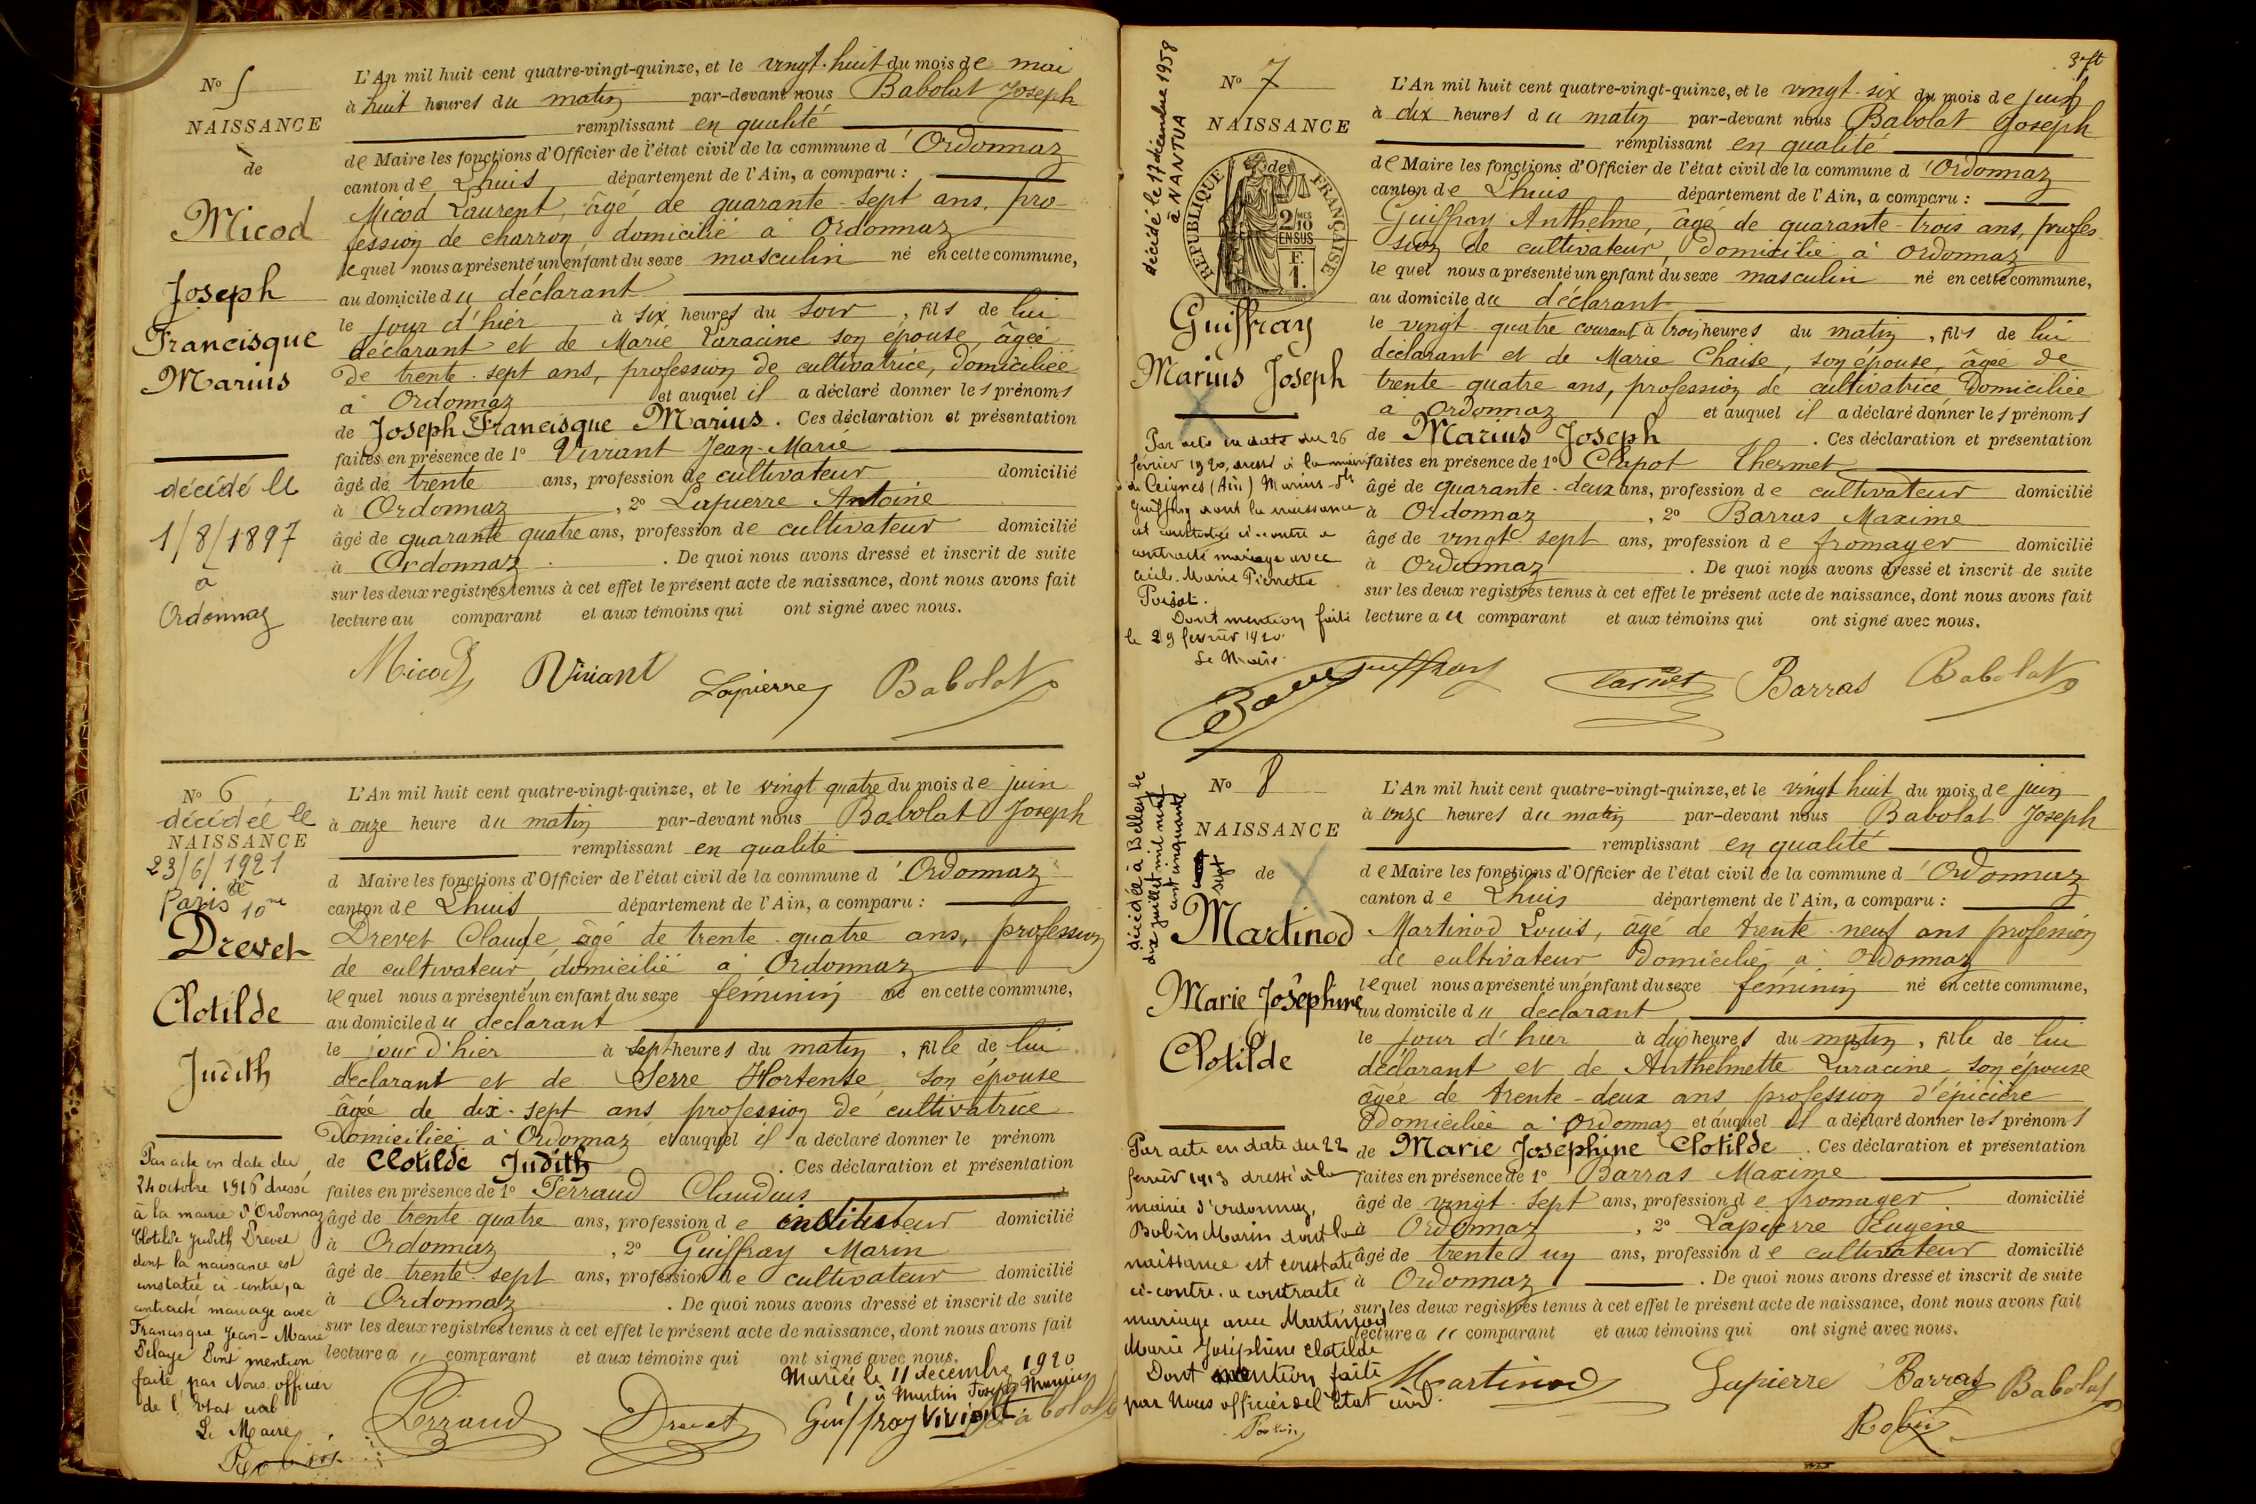 No 5
NAISSANCE
de
Micod
Joseph
Francisque
Marius
décédé le
1/8/1897
à
Ordonnaz
L'An mil huit cent quatre-vingt-quinze, et le vingt-huit du mois de mai
à huit heures du matin par-devant nous Babolat Joseph
remplissant en qualité
de Maire les fonctions d'Officier de l'état civil de la commune d'Ordonnaz
canton de Lhuis département de l'Ain, a comparu :
Micod Laurent, âgé de quarante-sept ans, pro-
fession de charron, domicilié à Ordonnaz
lequel nous a présenté un enfant du sexe masculin né en cette commune,
au domicile du déclarant
le jour d'hier à six heures du soir, fils de lui
déclarant et de Marie Laracine son épouse, âgée
de trente-sept ans, profession de cultivatrice, domiciliée
à Ordonnaz et auquel il a déclaré donner les prénoms
de Joseph Francisque Marius. Ces déclaration et présentation
faites en présence de 1o Viviant Jean-Marie
âgé de trente ans, profession de cultivateur domicilié
à Ordonnaz, 2o Lapierre Antoine
âgé de quarante quatre ans, profession de cultivateur domicilié
à Ordonnaz. De quoi nous avons dressé et inscrit de suite
sur les deux registres tenus à cet effet le présent acte de naissance, dont nous avons fait
lecture au comparant et aux témoins qui ont signé avec nous.
Micod Viviant Lapierre Babolat
No 6
décédée le
NAISSANCE
23/6/1921
de
Paris 10me
Drevet
Clotilde
Judith
Par acte en date du
24 octobre 1916 dressé
à la mairie d'Ordonnaz
Clotilde Judith Drevet
dont la naissance est
constatée ci-contre, a
contracté mariage avec
Francisque Jean-Marie
Delaye Dont mention
faite par Nous officier
de l'Etat civil
Le Maire
L'An mil huit cent quatre-vingt-quinze, et le vingt quatre du mois de juin
à onze heure du matin par-devant nous Babolat Joseph
remplissant en qualité
d Maire les fonctions d'Officier de l'état civil de la commune d'Ordonnaz
canton de Lhuis département de l'Ain, a comparu :
Drevet Claude, âgé de trente-quatre ans, profession
de cultivateur, domicilié à Ordonnaz
lequel nous a présenté un enfant du sexe féminin né en cette commune,
au domicile du declarant
le jour d'hier à sept heures du matin, fille de lui
déclarant et de Serre Hortense, son épouse
âgée de dix-sept ans profession de cultivatrice
Domiciliée à Ordonnaz et auquel il a déclaré donner le prénom
de Clotilde Judith. Ces déclaration et présentation
faites en présence de 1o Perraud Claudius
âgé de trente quatre ans, profession de instituteur domicilié
à Ordonnaz, 2o Guiffray Marin
âgé de trente-sept ans, profession de cultivateur domicilié
à Ordonnaz. De quoi nous avons dressé et inscrit de suite
sur les deux registres tenus à cet effet le présent acte de naissance, dont nous avons fait
lecture au comparant et aux témoins qui ont signé avec nous.
Mariée le 11 décembre 1920
à Martin Joseph
Viviant
Perraud Drevet Guiffray Babolat
37ft
No 7
NAISSANCE
de
RÉPUBLIQUE FRANÇAISE
2/10 MES EN SUS
F. 1.
décédé le 17 décembre 1958
à NANTUA
Guiffray
Marius Joseph
Par acte en date du 26
février 1920, dressé à la mairie
de Ceignes (Ain) Marius Jh
Guiffray dont la naissance
est constatée ci-contre a
contracté mariage avec
Marie Pierrette
Dont mention faite
le 29 février 1920
Le Maire
L'An mil huit cent quatre-vingt-quinze, et le vingt-six du mois de juin
à dix heures du matin par-devant nous Babolat Joseph
remplissant en qualité
de Maire les fonctions d'Officier de l'état civil de la commune d'Ordonnaz
canton de Lhuis département de l'Ain, a comparu :
Guiffray Anthelme, âgé de quarante-trois ans, profes-
sion de cultivateur, domicilié à Ordonnaz
lequel nous a présenté un enfant du sexe masculin né en cette commune,
au domicile du déclarant
le vingt-quatre courant à trois heures du matin, fils de lui
déclarant et de Marie Chaise, son épouse, âgée de
trente quatre ans, profession de cultivatrice Domiciliée
à Ordonnaz et auquel il a déclaré donner les prénoms
de Marius Joseph. Ces déclaration et présentation
faites en présence de 1o Clapot Thermet
âgé de quarante-deux ans, profession de cultivateur domicilié
à Ordonnaz, 2o Barras Maxime
âgé de vingt-sept ans, profession de fromager domicilié
à Ordonnaz. De quoi nous avons dressé et inscrit de suite
sur les deux registres tenus à cet effet le présent acte de naissance, dont nous avons fait
lecture au comparant et aux témoins qui ont signé avec nous.
Guiffray Barras Babolat
No 8
NAISSANCE
de
décédée à Belley le
dix juillet mil neuf
cent cinquante
sept
Martinod
Marie Joséphine
Clotilde
Par acte en date du 22
février 1913 dressé à la
mairie d'Ordonnaz,
Bobin Marin dont la
naissance est constatée
ci-contre, a contracté
mariage avec Martinod
Marie Joséphine Clotilde
Dont mention faite
par Nous officier de l'Etat civil.
L'An mil huit cent quatre-vingt-quinze, et le vingt huit du mois de juin
à onze heures du matin par-devant nous Babolat Joseph
remplissant en qualité
de Maire les fonctions d'Officier de l'état civil de la commune d'Ordonnaz
canton de Lhuis département de l'Ain, a comparu :
Martinod Louis, âgé de trente-neuf ans profession
de cultivateur Domicilié à Ordonnaz
lequel nous a présenté un enfant du sexe féminin né en cette commune,
au domicile du declarant
le jour d'hier à dix heures du matin, fille de lui
déclarant et de Anthelmette Laracine son épouse
âgée de trente-deux ans profession d'épicière
Domiciliée à Ordonnaz et auquel il a déclaré donner les prénoms
de Marie Joséphine Clotilde. Ces déclaration et présentation
faites en présence de 1o Barras Maxime
âgé de vingt-sept ans, profession de fromager domicilié
à Ordonnaz, 2o Lapierre Eugène
âgé de trente un ans, profession de cultivateur domicilié
à Ordonnaz. De quoi nous avons dressé et inscrit de suite
sur les deux registres tenus à cet effet le présent acte de naissance, dont nous avons fait
lecture au comparant et aux témoins qui ont signé avec nous.
Martinod Lapierre Barras Babolat